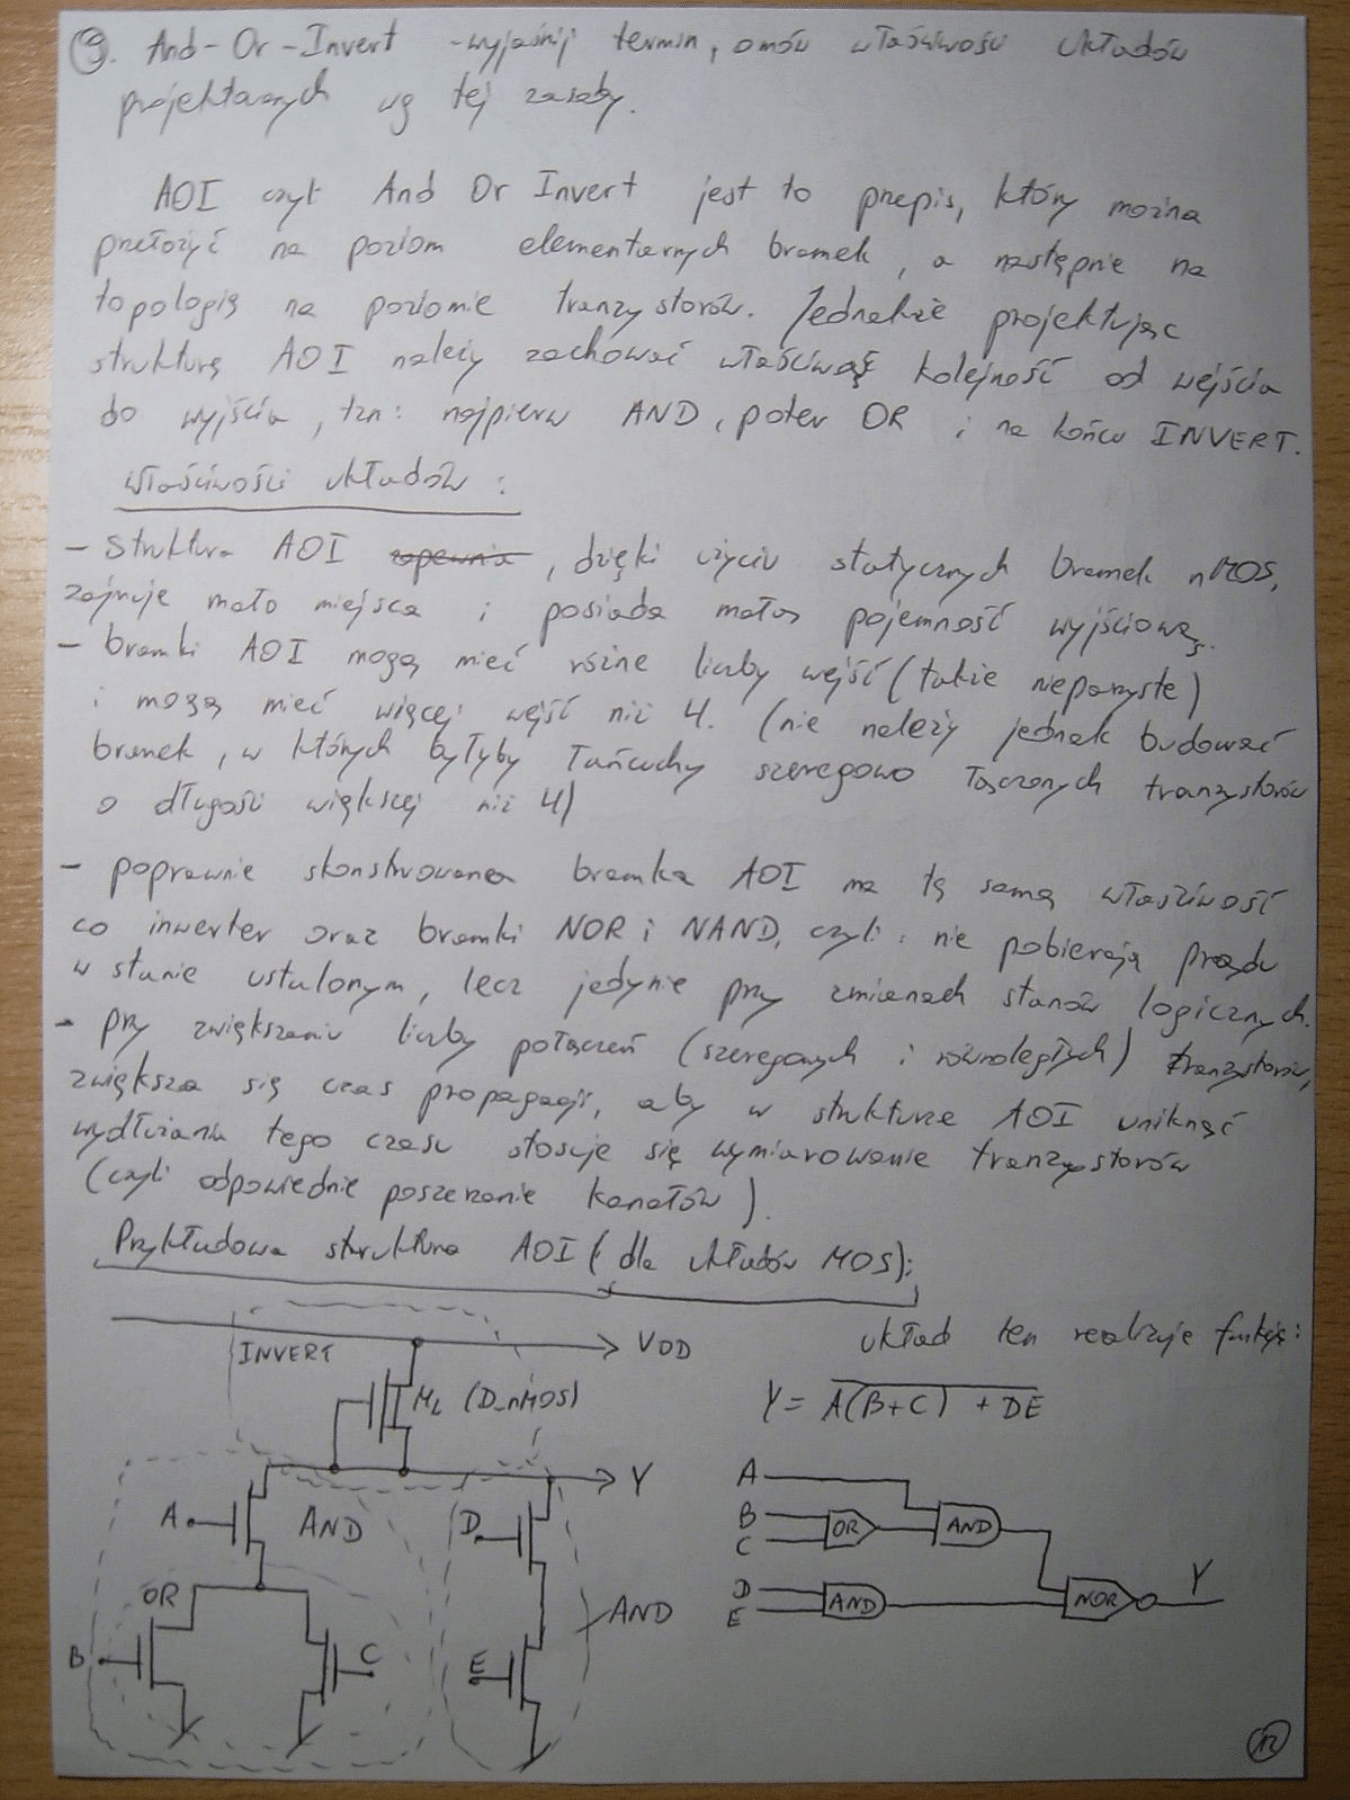 9. And-Or-Invert - wyjaśnij termin, omów właściwości układów
projektowanych wg tej zasady.
AOI czyt And Or Invert jest to przepis, który można
przełożyć na poziom elementarnych bramek, a następnie na
topologię na poziomie tranzystorów. Jednakże projektując
strukturę AOI należy zachować właściwą kolejność od wejścia
do wyjścia, tzn: najpierw AND, potem OR i na końcu INVERT.
Właściwości układów:
- Struktura AOI zapewnia, dzięki użyciu statycznych bramek nMOS,
zajmuje mało miejsca i posiada małą pojemność wyjściową.
- bramki AOI mogą mieć różne liczby wejść (także nieparzyste)
i mogą mieć więcej wejść niż 4. (nie należy jednak budować
bramek, w których byłyby łańcuchy szeregowo łączonych tranzystorów
o długości większej niż 4)
- poprawnie skonstruowana bramka AOI ma tę samą właściwość
co inwerter oraz bramki NOR i NAND, czyli: nie pobierają prądu
w stanie ustalonym, lecz jedynie przy zmianach stanów logicznych.
- przy zwiększeniu liczby połączeń (szeregowych i równoległych) tranzystorów,
zwiększa się czas propagacji, aby w strukturze AOI uniknąć
wydłużania tego czasu stosuje się wymiarowanie tranzystorów
(czyli odpowiednie poszerzanie kanałów).
Przykładowa struktura AOI (dla układów MOS):
układ ten realizuje funkcję:
INVERT
VDD
ML (D_nMOS)
Y = \overline{A(B+C) + DE}
Y
A
AND
D
OR
AND
B
C
E
A
B
C
OR
AND
D
E
AND
NOR
Y
12